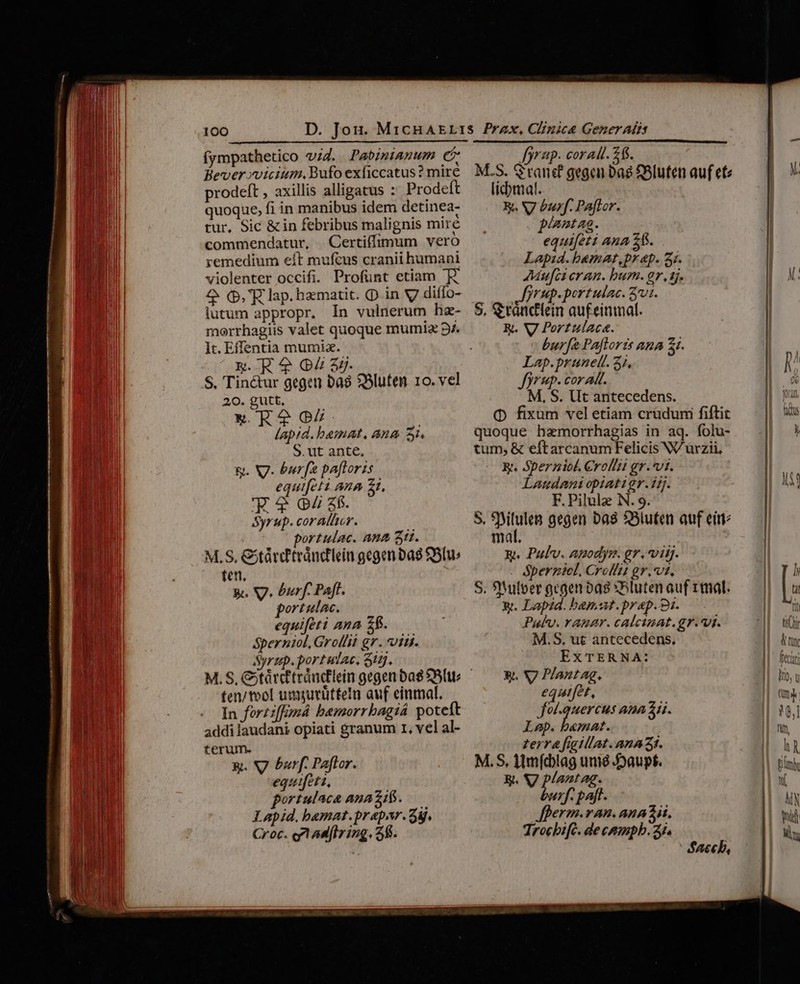 100 D. Joh. Michaelis Prax. Clinica Generalis
ſympathetico vid. Pavinianum &
Beverovicium, Bufo exſiccatus? mirè
prodeſt, axillis alligatus: Prodeſt
quoque, ſi in manibus idem detinea-
tur. Sic & in febribus malignis mirè
commendatur. Certiſſimum verò
remedium eſt muſcus cranii humani
violenter occiſi. Proſunt etiam
lap. hæmatit. in 🜄 diſſo-
lutum appropr. In vulnerum hæ-
morrhagiis valet quoque mumiæ
It. Eſſentia mumiæ.
S. Tinctur gegen das Bluten 10. vel
20. gutt.
lapid. hæmat. ana ʒi.
S. ut ante.
℞. 🜄. burſæ paſtoris
equiſeti ana ℥i.
Syrup. corallior.
portulac. ana
M. S. Stärckträncklein gegen das Blu-
ten.
℞. 🜄. burſ. Paſt.
portulac.
equiſeti ana ℥ß.
Sperniol. Crollii gr. viii.
Syrup. portulac. ʒiij.
M. S. Stärckträncklein gegen das Blu-
ten/ wol umzurütteln auf einmal.
In fortiſſimâ hæmorrhagiâ poteſt
addi laudani opiati granum 1. vel al-
terum.
℞. 🜄 burſ. Paſtor.
equiſeti,
portulacæ ana
Lapid. hæmat. præpar.
Croc. ♂ adſtring. ℈ß.
ſyrup. corall. ℥ß.
M. S. Tranck gegen das Bluten auf et-
lichmal.
℞. 🜄 burſ. Paſtor.
plantag.
equiſeti ana ℥ß.
Lapid. hæmat. præp.
Muſci cran. hum. gr. ij.
ſyrup. portulac. ʒvi.
S. Träncklein auf einmal.
℞. 🜄 Portulacæ.
burſæ Paſtoris ana ℥i.
Lap. prunell.
ſyrup. corall.
M. S. Ut antecedens.
fixum vel etiam crudum ſiſtit
quoque hæmorrhagias in aq. ſolu-
tum, & eſt arcanum Felicis Würzii.
℞. Sperniol. Crollii gr. vi.
Laudani opiati gr. iij.
F. Pilulæ N. 9.
S. Pilulen gegen das Bluten auf ein-
mal.
℞. Pulv. anodyn. gr. viij.
Sperniol. Crollii gr. vi.
S. Pulver gegen das Bluten auf 1 mal.
℞. Lapid. hæmat. præp. ℈i.
Pulv. ranar. calcinat. gr. vi.
M. S. ut antecedens.
EXTERNA:
℞. 🜄 Plantag.
equiſet.
fol. quercus ana
Lap. hæmat.
terræ ſigillat. ana ʒi.
M. S. Umſchlag ums Haupt.
℞. 🜄 plantag.
burſ. paſt.
ſperm. ran. ana
Trochiſc. de camph.
Sacch,